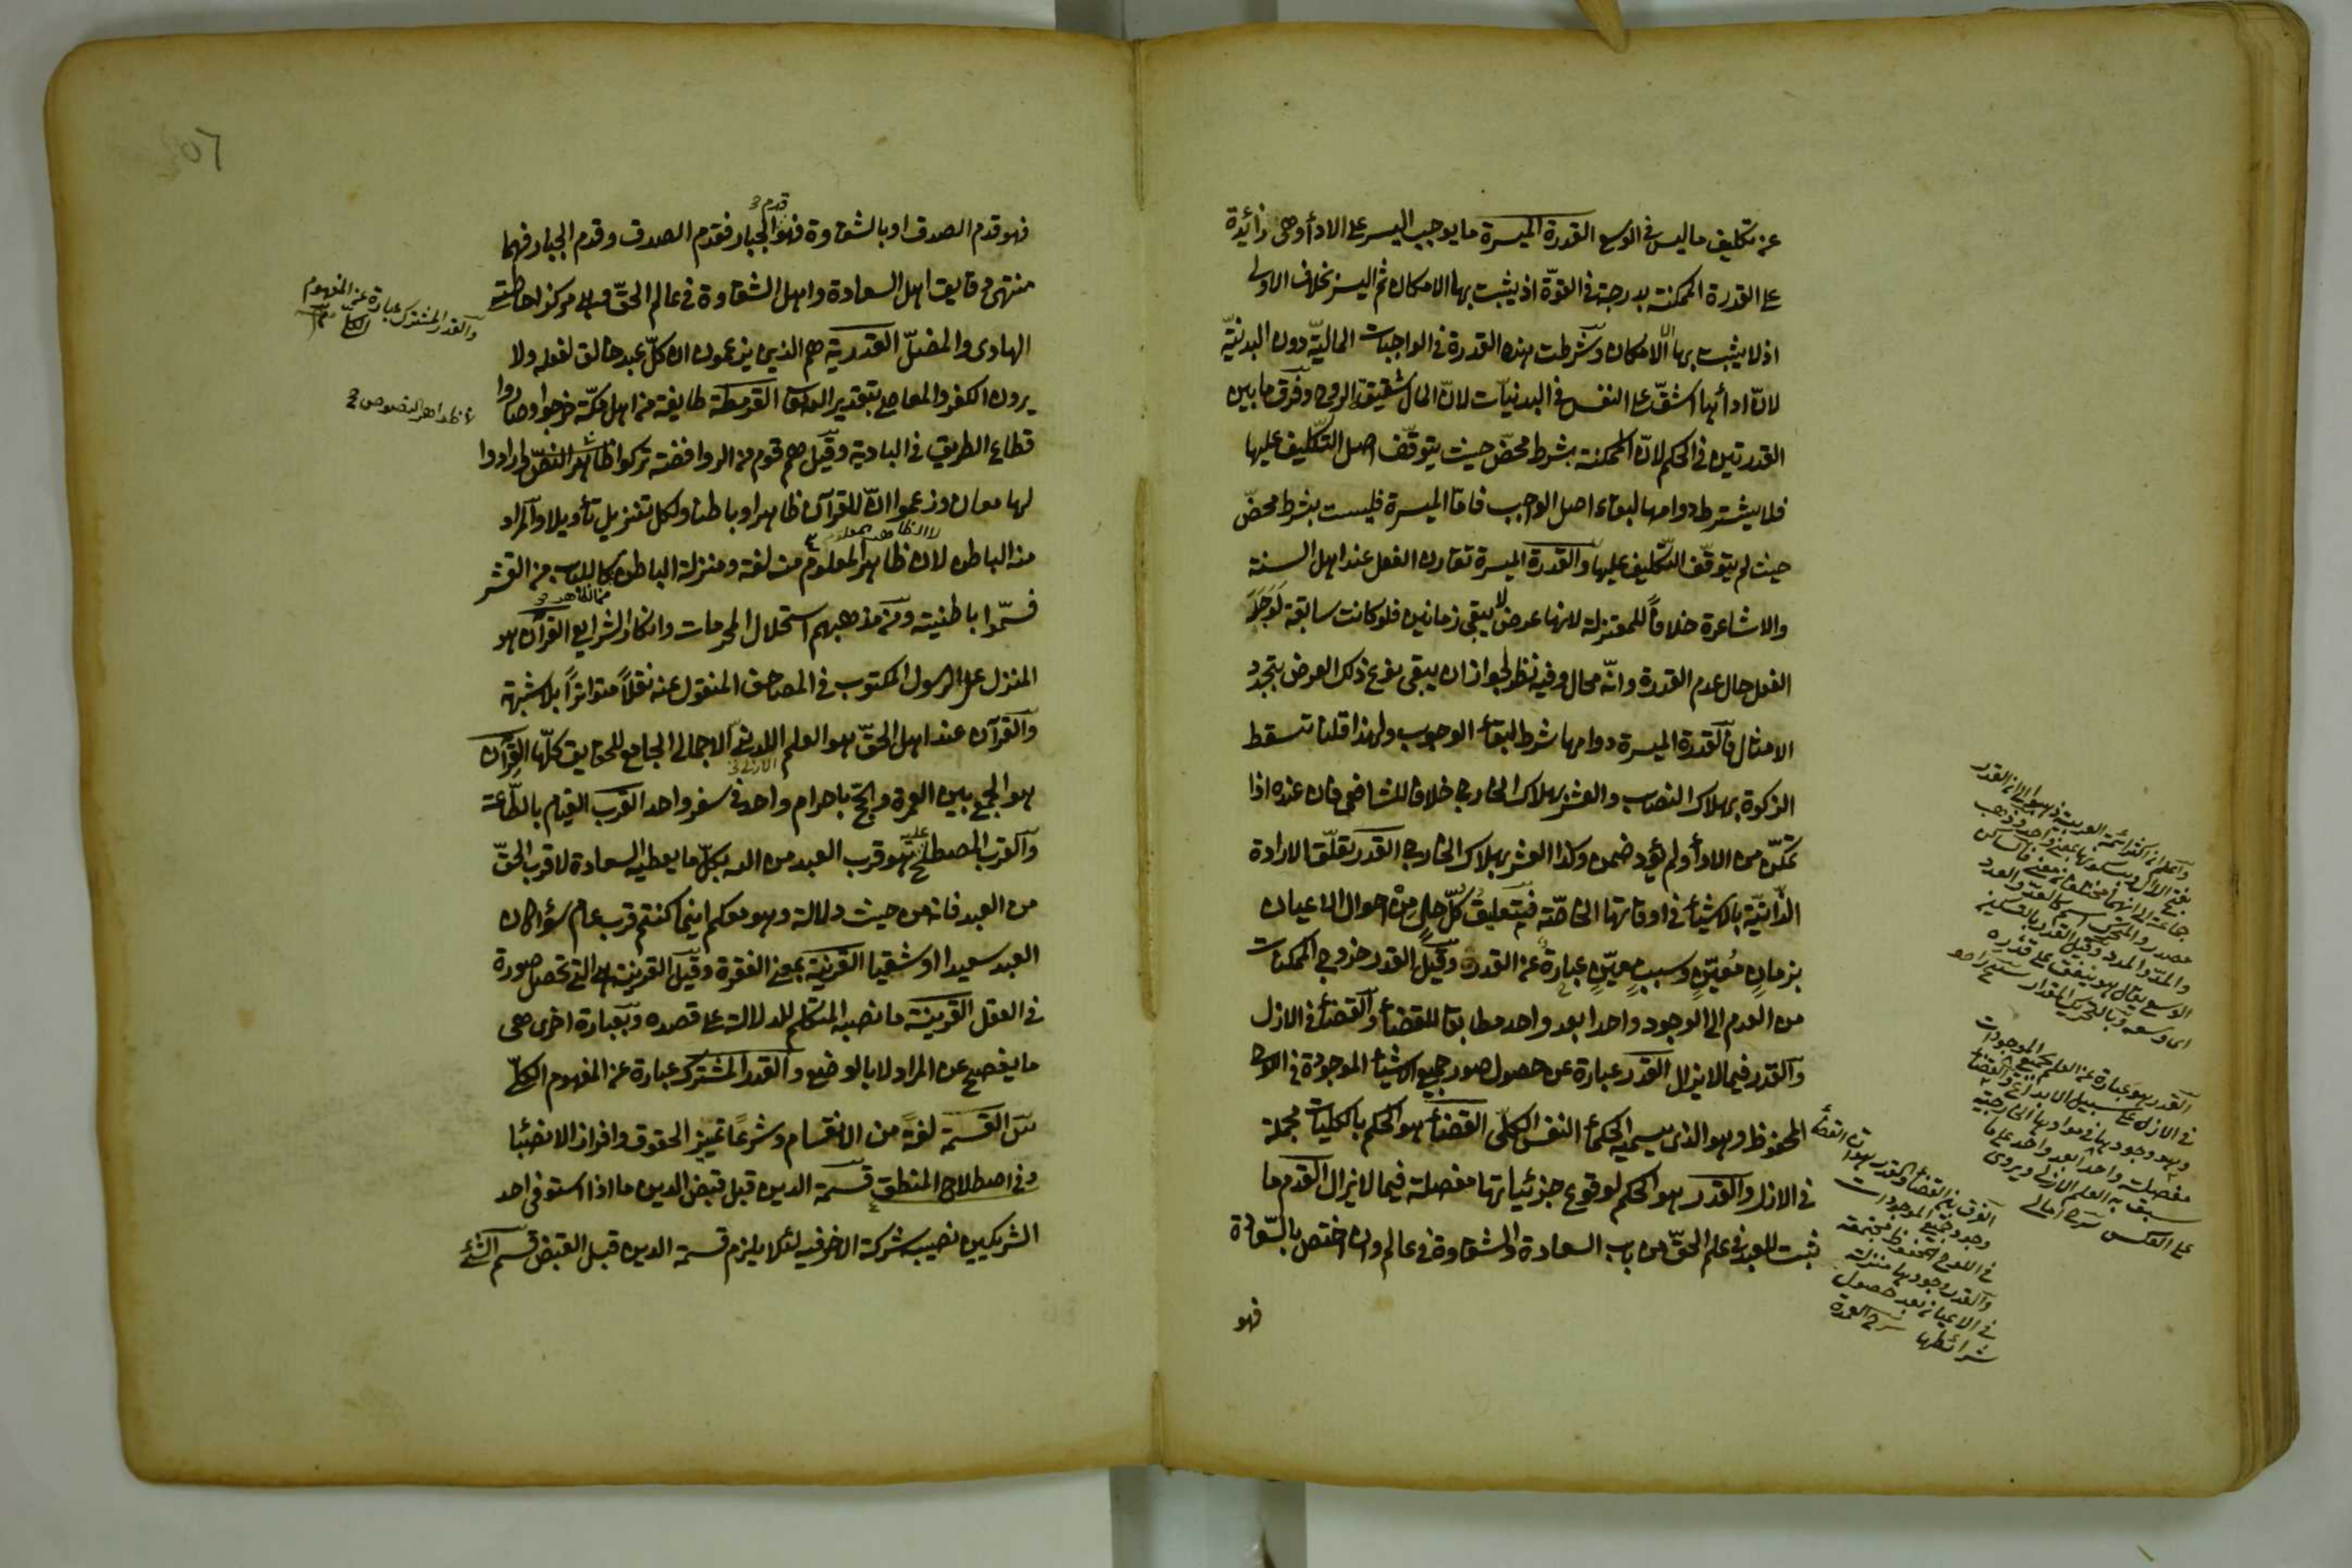 عن تكليف ما ليس في الوسع القدرة الميسرة ما يوجب اليسر على الاداء وهى زائدة
على القدرة الممكنة بدرجة في القوّة اذ يثبت بها الامكان ثم اليسر بخلاف الاولى
اذ لا يثبت بها الا الامكان وشرطت هذه القدرة في الواجبات الماليّة دون البدنيّة
لانّ اداءها اشقّ على النفس في البدنيّات لانّ المال شقيقة الروح وفرق ما بين
القدرتين في الحكم لانّ الممكنة شرط محضّ حيث يتوقّف اصل التكليف عليها
فلا يشترط دوامها لبقاء اصل الواجب فامّا الميسرة فليست بشرط محضّ
حيث لم يتوقّف التّكليف عليها والقدرة الميسرة تقارن الفعل عند اهل السنة
والاشاعرة خلافاً للمعتزلة لانها عرض لا يبقى زمانين فلو كانت سابقة لوجد
الفعل حال عدم القدرة وانّه محال وفيه نظر لجواز ان يبقى نوع ذلك العرض بتجدد
الامثال فالقدرة الميسرة دوامها شرط لبقاء الوجوب ولهذا قلنا تسقط
الزكوة بهلاك النصاب والعشر بهلاك الخارج خلافا للشافعى فان عنده اذا
تمكّن من الاداء ولم يؤد ضمن وكذا العشر بهلاك الخارج القدر تعلّق الارادة
الذّاتيّة بالاشياء في اوقاتها الخاصّة فتعليق كلّ حال من احوال الاعيان
بزمان معيّن وسبب معيّن عبارة عن القدر وقيل القدر خروج الممكنات
من العدم الى الوجود واحدا بعد واحد مطابقا للقضاء والقضاء في الازل
والقدر فيما لا يزال القدر عبارة عن حصول صور جميع الاشياء الموجودة في اللوح
المحفوظ وهو الذى يسميه الحكماء النفس الكلّى القضاء هو الحكم بالكليات مجملة
في الازل والقدر هو الحكم لوقوع جزئياتها مفصلة فيما لا يزال القدم ما
ثبت للعبد في علم الحقّ من باب السعادة والشقاوة في عالم وان اختص بالسّعادة
فهو
واعلم ان اكثر ائمة العربية ذهبوا الى ان القدر
بفتح الدال وبسكونها بمعنى واحد وذهب
جماعة الى انهما مختلفان معنى فالساكن
مصدر والمتحرك اسم كالعدّ والعدد
والمدّ والمدد وقيل القدر بالتسكين
الوسع يقال هو ينفق على قدره
اى وسعه وبالتحريك المقدار
القدر هو عبارة عن العلم بجميع الموجودات
في الازل على سبيل الابداع والقضاء
وهو وجودها في موادها الخارجية
مفصلة واحدا بعد واحد على ما
سبق به العلم الازلى ويروى
على العكس شرح امالى
الفرق بين القضاء والقدر هو ان القضاء
وجود جميع الموجودات
في اللوح المحفوظ مجتمعة
والقدر وجودها منزلة
في الاعيان بعد حصول
شرائطها شرح العمدة
٥٦
فهو قدم الصدق او بالشقاوة فهو قدم الجبار فقدم الصدق وقدم الجبار فهما
منتهى رقايق اهل السعادة واهل الشقاوة في عالم الحقّ وهى مركز احاطته
الهادى والمضلّ القدرية هم الذين يزعمون ان كلّ عبد خالق لفعله ولا
يرون الكفر والمعاصى بتقدير الله تعالى القرمطة طايفة من اهل مكّة خرجوا وصاروا
قطاع الطريق في البادية وقيل هم قوم من الروافضة تركوا ظاهر النصّ وارادوا
لها معان وزعموا انّ للقرآن ظاهرا وباطنا ولكل تنزيل تأويلا والمراد
منه الباطن لان ظاهر المعلوم من لغة ومنزلة الباطن كاللباب من القشر
لا الظاهر المعلوم
فسمّوا باطنية ومن مذهبهم استحلال المحرمات وانكار الشرايع القرآن هو
المنزل على الرسول المكتوب في المصاحف المنقول عنه نقلاً متواتراً بلا شبهة
والقرآن عند اهل الحقّ هو العلم اللدنىّ الاجمالى الجامع للحقايق كلّها القرآن
هو الجمع بين العمرة والحجّ باحرام واحد في سفر واحد القرب القيام بالطّاعة
والقرب المصطلح عليه هو قرب العبد من الله بكلّ ما يعطيه السعادة لا قرب الحقّ
من العبد فانه من حيث دلالة وهو معكم اينما كنتم قرب عام سواء كان
العبد سعيدا او شقيا القرينة بمعنى الفقرة وقيل القرينة هى التى تحصل صورة
في العقل القرينة ما نصبه المتكلم للدلالة على قصده وبعبارة اخرى هى
ما يفصح عن المراد لا بالوضع والقدر المشترك عبارة عن المفهوم الكلّى
القسمة لغة من الانقسام وشرعا تمييز الحقوق وافراز الانصباء
وفى اصطلاح المنطق قسمة الدين قبل قبض الدين ما اذا استوفى احد
الشريكين نصيبه شركة الآخر فيه لئلا يلزم قسمة الدين قبل القبض قسم الشئ
والقدر المشترك عبارة عن المفهوم
الكلى
ظواهر النصوص